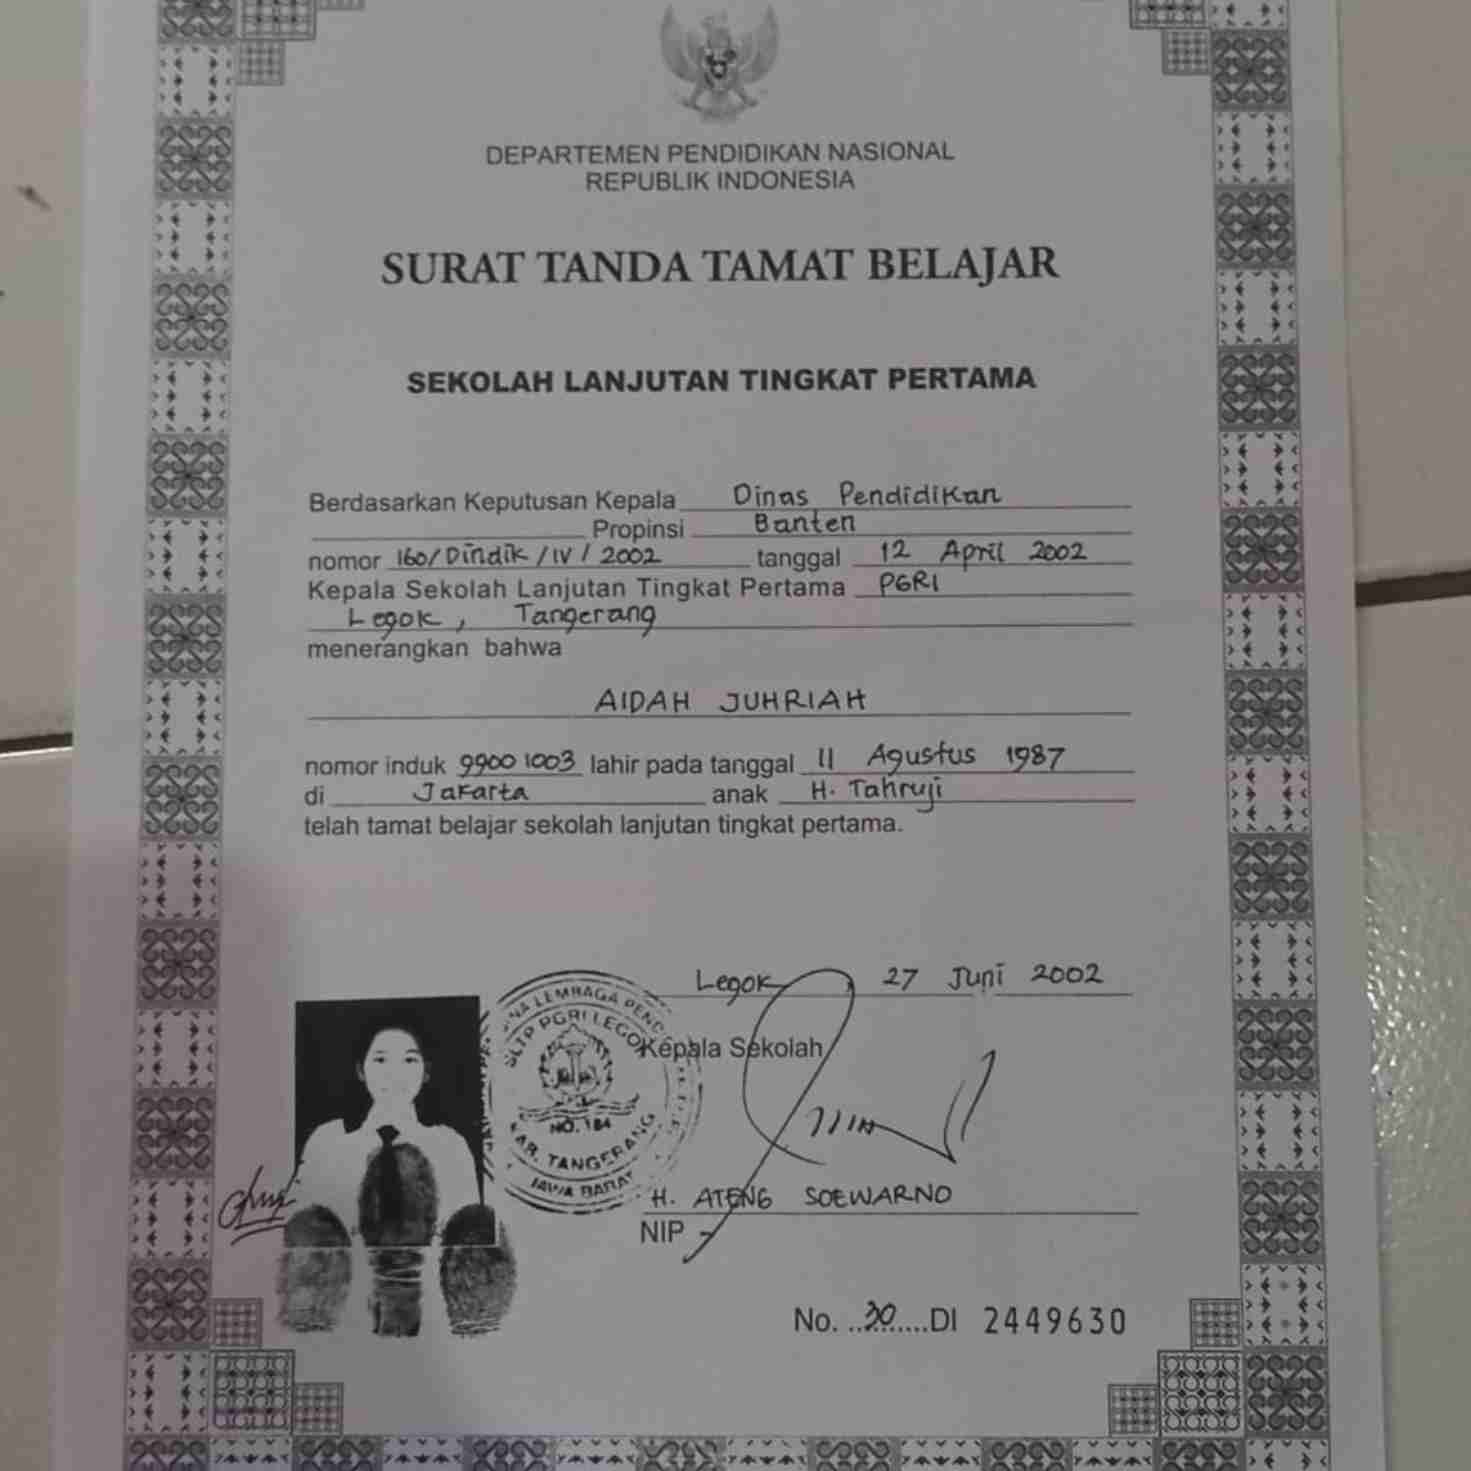 DEPARTEMEN PENDIDIKAN NASIONAL
REPUBLIK INDONESIA
SURAT TANDA TAMAT BELAJAR
SEKOLAH LANJUTAN TINGKAT PERTAMA
Berdasarkan Keputusan Kepala Dinas Pendidikan
Propinsi Banten
nomor 160/Dindik/IV/2002 tanggal 12 April 2002
Kepala Sekolah Lanjutan Tingkat Pertama PGRI
Legok, Tangerang
menerangkan bahwa
AIDAH JUHRIAH
nomor induk 99001003 lahir pada tanggal 11 Agustus 1987
di Jakarta anak H. Tahruji
telah tamat belajar sekolah lanjutan tingkat pertama.
Legok 27 Juni 2002
Kepala Sekolah
LEMBAGA
SLTP PGRI LEGOK
NO. 184
KAB. TANGERANG
JAWA BARAT
H. ATENG SOEWARNO
NIP -
No. ..30....DI 2449630